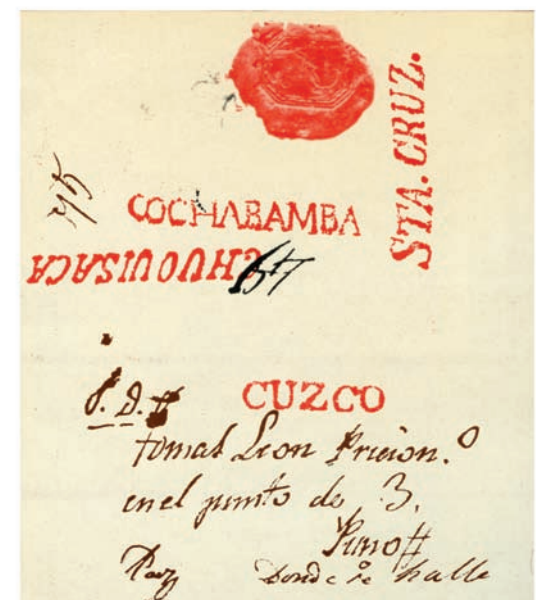 STA. CRUZ.
COCHABAMBA
CHUQUISACA
CUZCO
S. D. 
tomas Leon Pricion.º
en el punto de 3,
Puno
Donde se halle